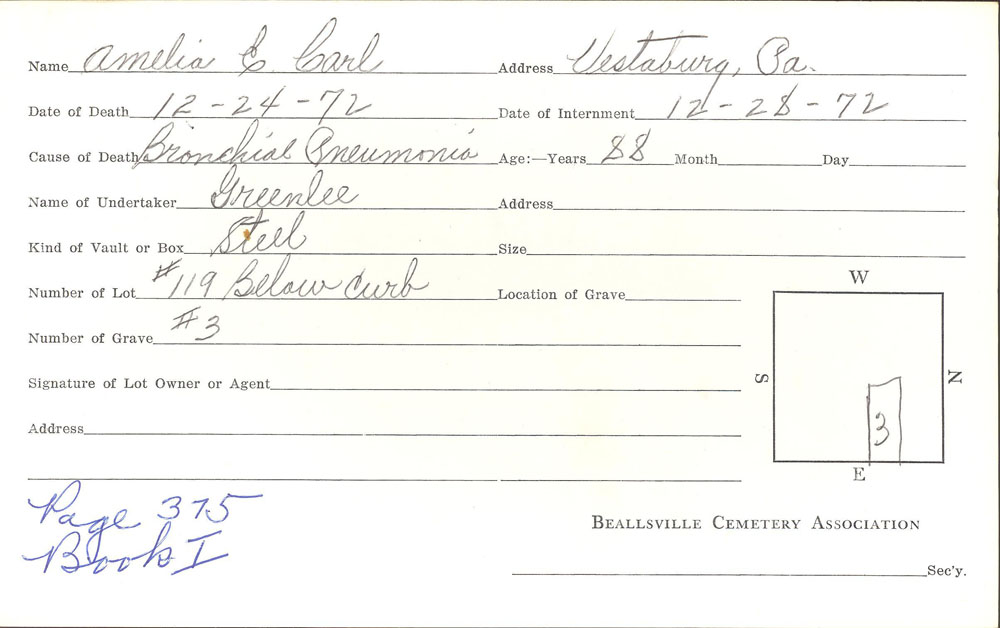 Name Amelia E. Carl Address Vestaburg, Pa.
Date of Death 12-24-72 Date of Internment 12-28-72
Cause of Death Bronchial Pneumonia Age:—Years 88 Month Day
Name of Undertaker Greenlee Address
Kind of Vault or Box Steel Size
Number of Lot #119 Below Curb Location of Grave
Number of Grave #3
Signature of Lot Owner or Agent
Address
W
S
N
3
E
Page 375
Book I
Beallsville Cemetery Association
Sec'y.